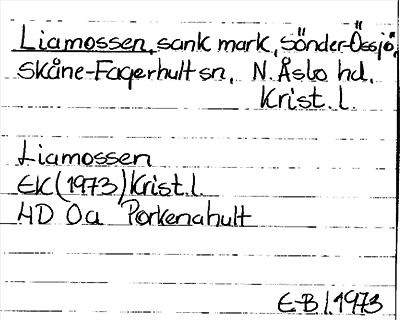 Liamossen, sank mark, Sönder-Össjö,
Skåne-Fagerhult sn, N. Åsbo hd,
Krist. l.
Liamossen
EK (1973) Krist. l.
4D 0a Porkenahult
E-B l. 1973